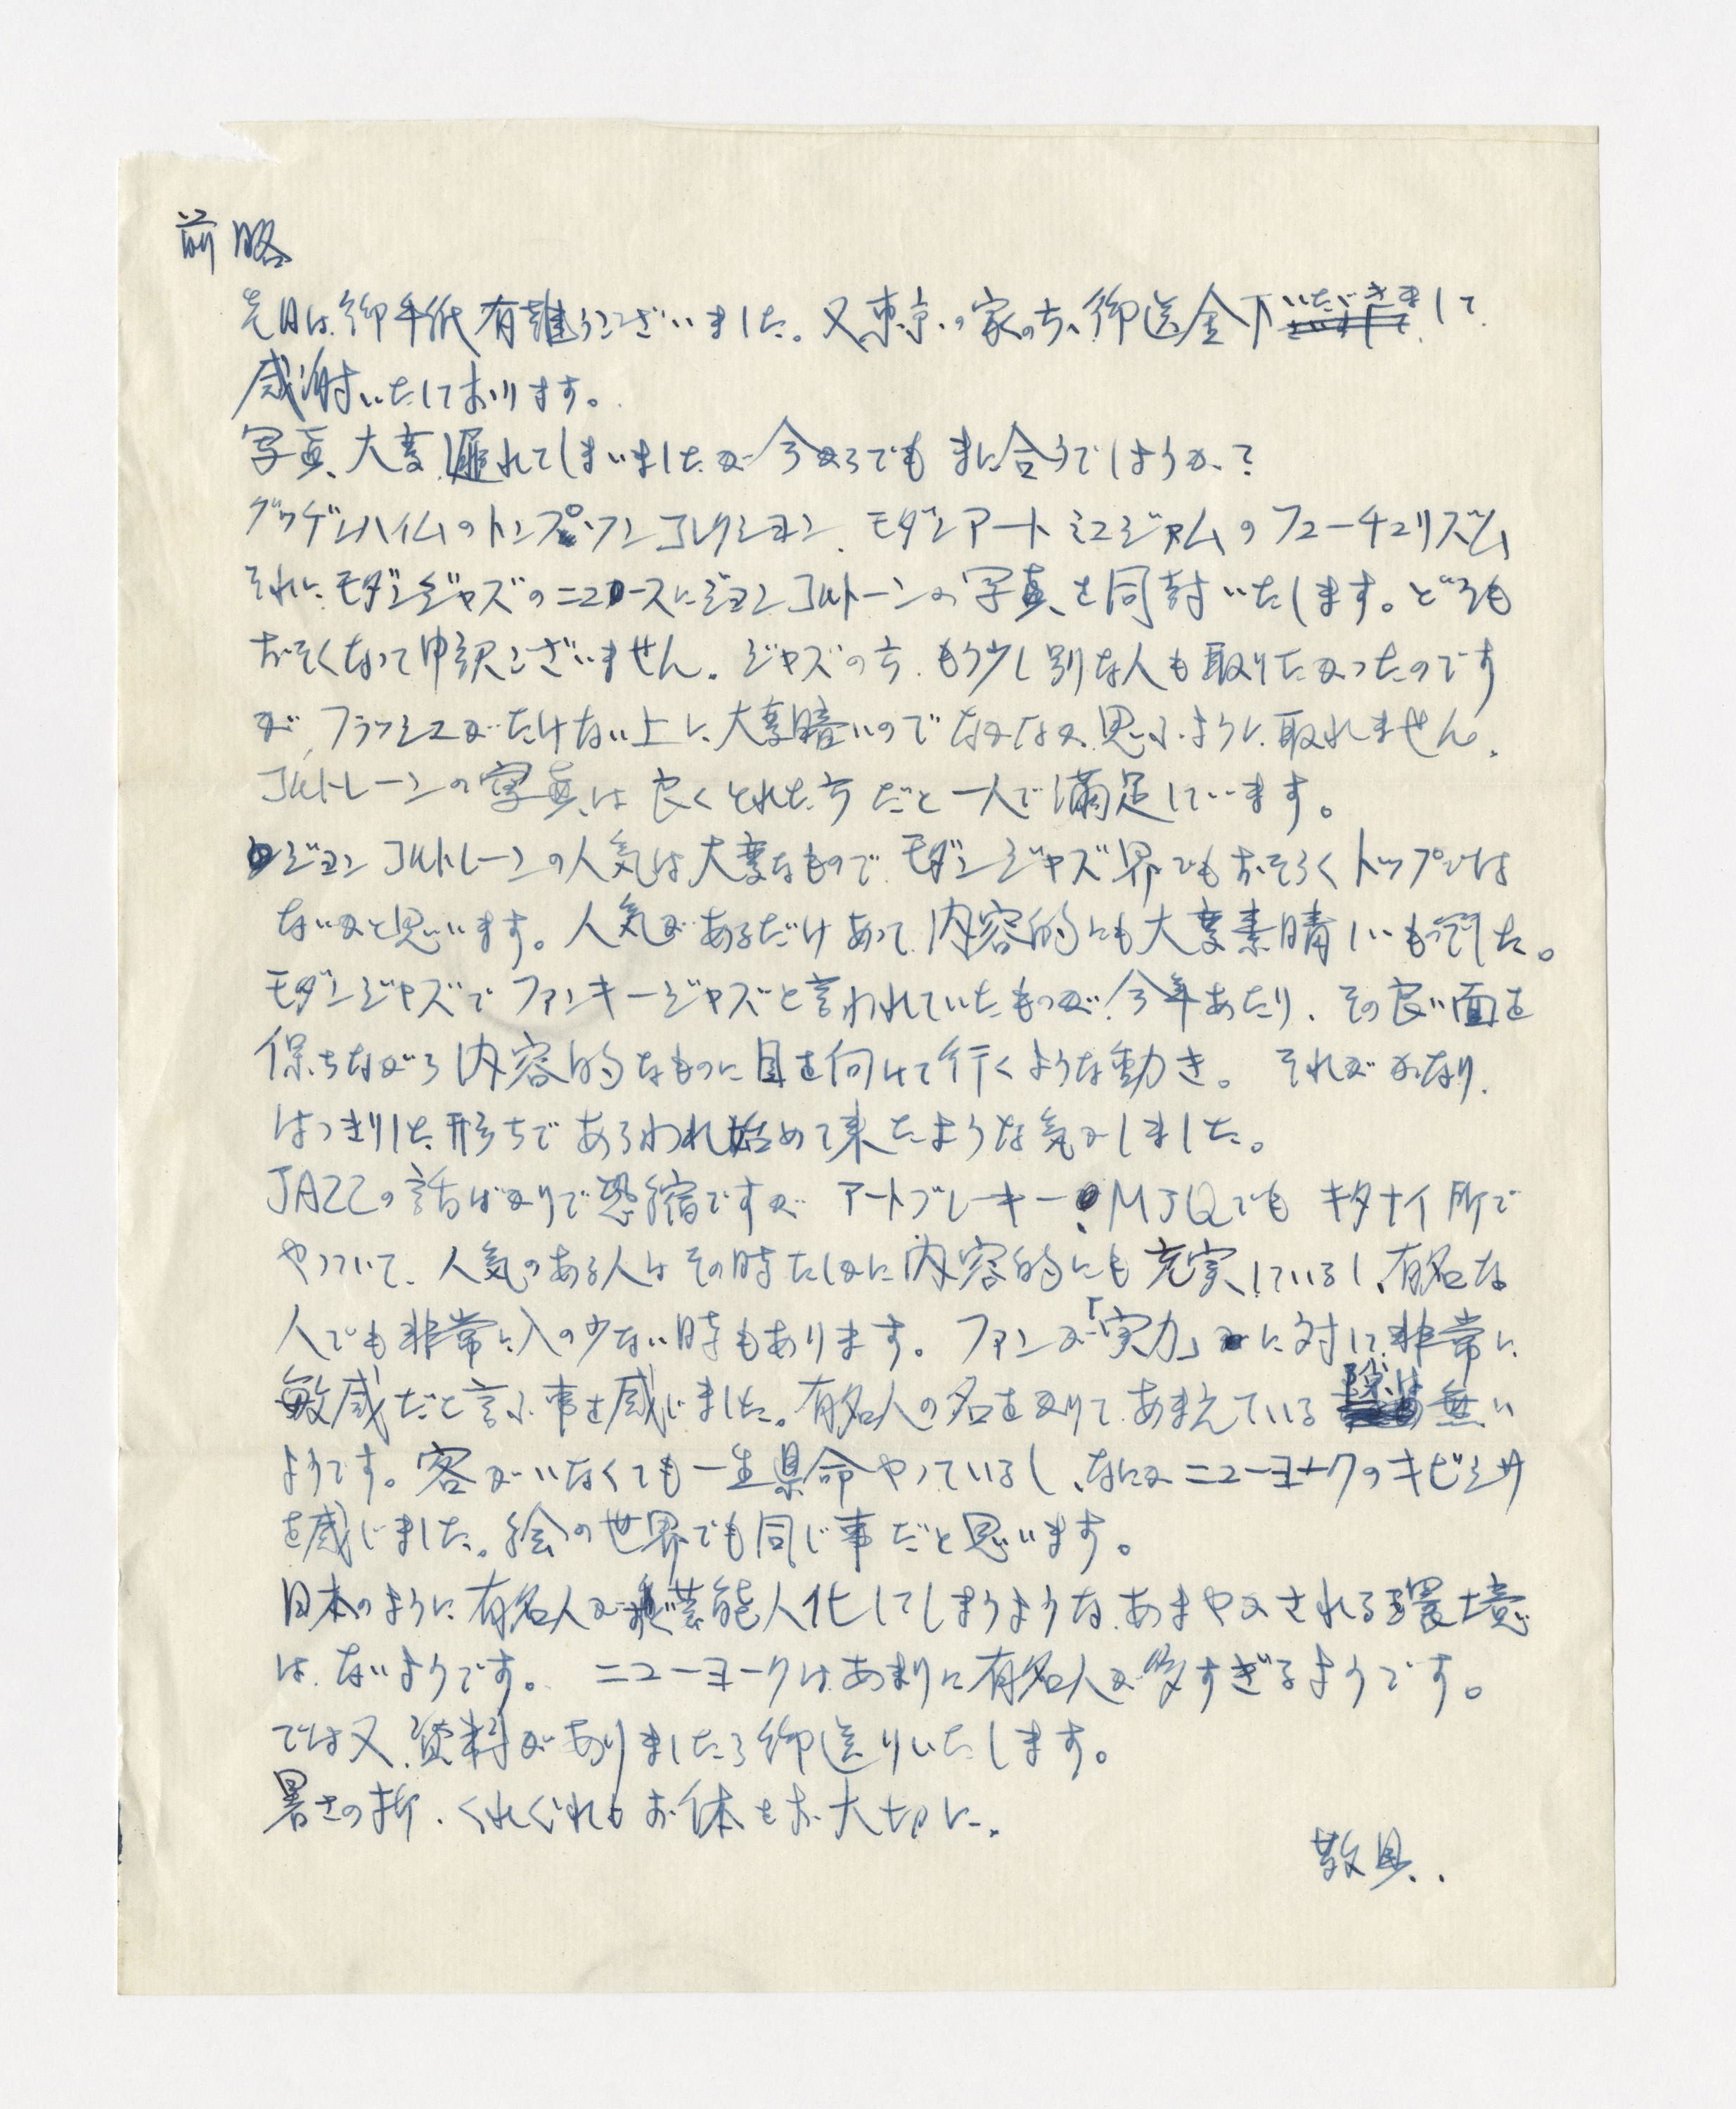 前略
先日は御手紙有難うございました。又東京の家の方へ御送金下いただきまして
感謝いたしております。
写真、大変遅れてしまいましたが今からでもまに合うでしょうか?
グッゲンハイムのトンプソンコレクション、モダンアートミュジァムのフューチュリズム
それに、モダンジャズのニュースにジョンコルトレーンの写真を同封いたします。どうも
おそくなって申訳ございません。ジャズの方、もう少し別な人も取りたかったのです
が、フラッシュがたけない上に、大変暗いのでなかなか思ふように取れません。
コルトレーンの写真は良くとれた方だと一人で満足しています。
ジョンコルトレーンの人気は大変なもので、モダンジャズ界でもおそらくトップでは
ないかと思います。人気があるだけあって内容的にも大変素晴しいもので した。
モダンジャズでファンキージャズと言われていたものが今年あたり、その良い面を
保ちながら内容的なものに目を向けて行くような動き。 それがかなり、
はっきりした形ちであらわれ始めて来たような気がしました。
JAZZの話ばかりで恐縮ですが アートブレーキー、MJQでも キタナイ所で
やっていて、人気のある人はその時たしかに内容的にも充実しているし、有名な
人でも非常に入の少ない時もあります。ファンが「実力」に対して非常に
敏感だと言ふ事を感じました。有名人の名をかりて、あまえている隙は無い
ようです。客がいなくても一生県命やっているし、なにかニューヨークのキビシサ
を感じました。絵の世界でも同じ事だと思います。
日本のように有名人が芸能人化してしまうような、あまやかされる環境で
は、ないようです。 ニューヨークはあまりに有名人が多すぎるようです。
では又、資料がありましたら御送りいたします。
暑さの折、くれぐれもお体をお大切に。
敬具.